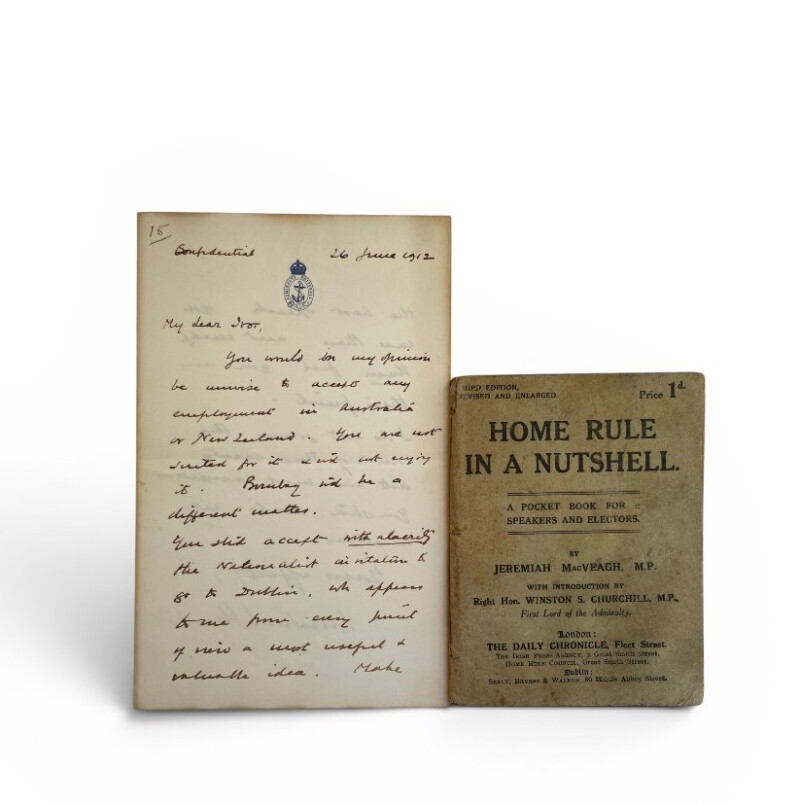 15
Confidential 26 June 1912
My dear Ivor,
You would in my opinion
be unwise to accept any
employment in Australia
or New Zealand. You are not
suited for it & wd not enjoy
it. Bombay wd be a
different matter.
You shd accept with alacrity
the Nationalist invitation to
go to Dublin, wh appears
to me from every point
of view a most useful &
valuable idea. Make
THIRD EDITION,
REVISED AND ENLARGED.
Price 1d.
HOME RULE
IN A NUTSHELL.
A POCKET BOOK FOR
SPEAKERS AND ELECTORS.
BY
JEREMIAH MACVEAGH, M.P.
WITH INTRODUCTION BY
Right Hon. WINSTON S. CHURCHILL, M.P.,
First Lord of the Admiralty.
London:
THE DAILY CHRONICLE, Fleet Street.
THE IRISH PRESS AGENCY, 2 Great Smith Street.
HOME RULE COUNCIL, Great Smith Street.
Dublin:
SEALY, BRYERS & WALKER, Middle Abbey Street.